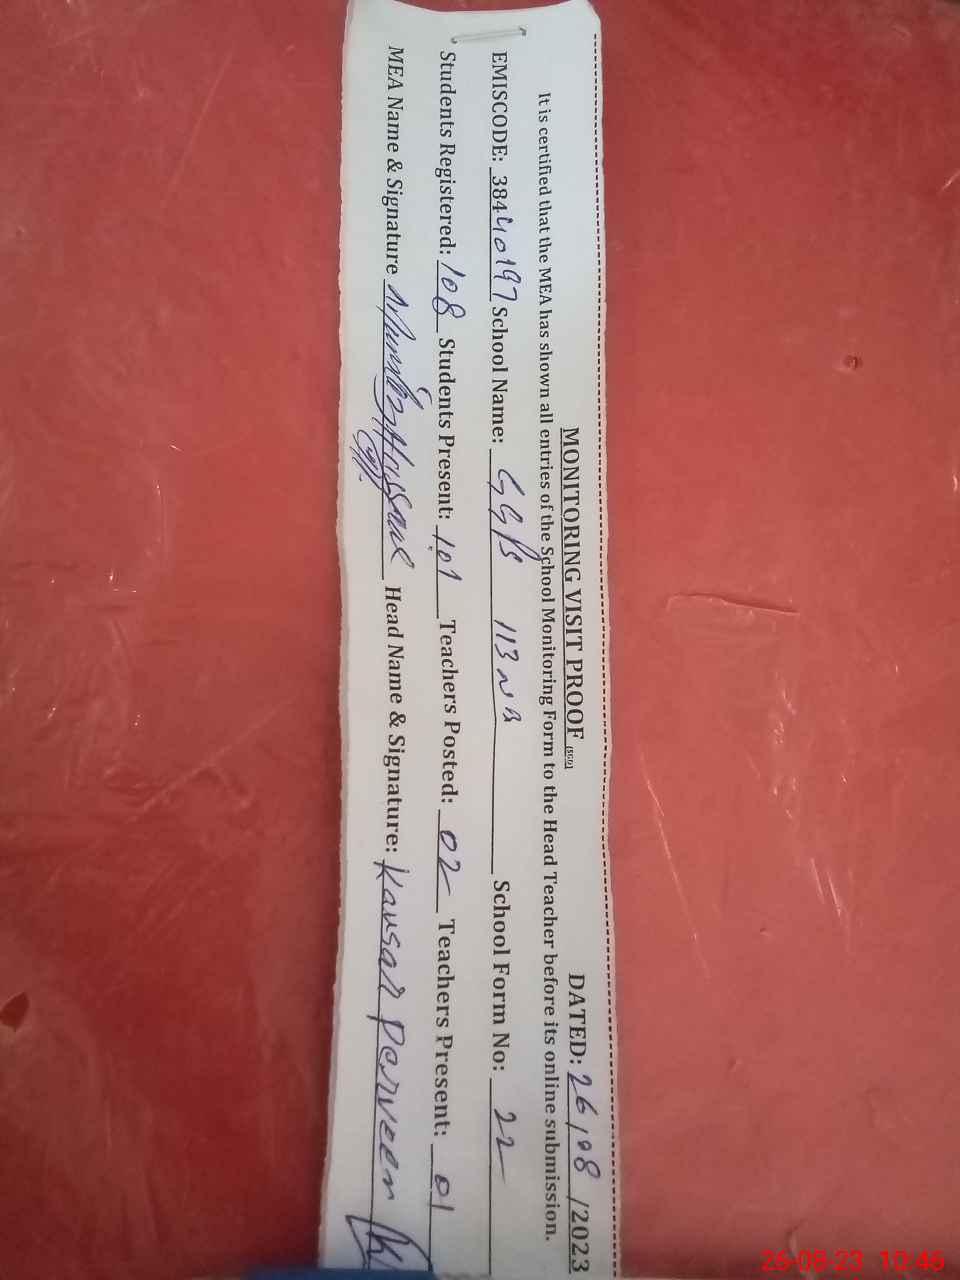 MONITORING VISIT PROOF (SGD) DATED: 26/08/2023
It is certified that the MEA has shown all entries of the School Monitoring Form to the Head Teacher before its online submission.
EMISCODE: 38440197 School Name: GGPS 113 NB School Form No: 22
Students Registered: 108 Students Present: 101 Teachers Posted: 02 Teachers Present: 01
MEA Name & Signature Hussain Head Name & Signature: Kausar Parveen
26-08-23 10:46